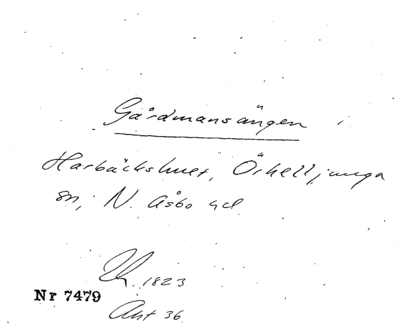 Gårdmansängen i
Harbäckshult, Örkelljunga
sn, N. Åsbo hd.
1823
Nr 7479
Akt 36